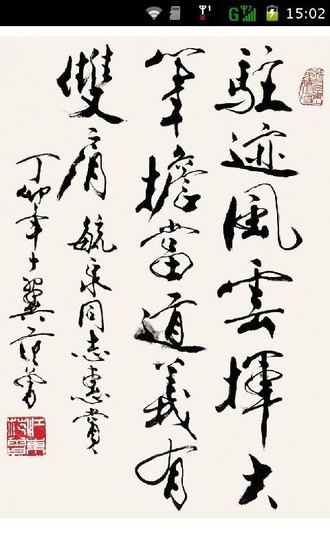 15:02
駐迹風雲揮大
筆擔當道義有
雙肩 毓泉同志惠賞
丁卯年十翼范曾